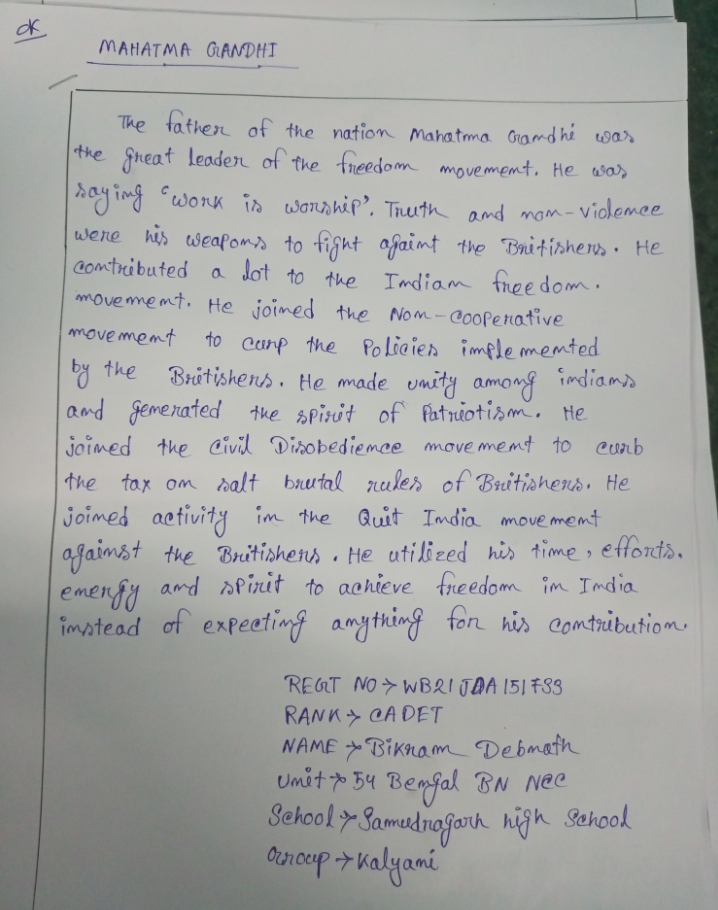 OK
MAHATMA GANDHI
The father of the nation Mahatma Gandhi was
the great leader of the freedom movement. He was
saying 'work is worship'. Truth and non-violence
were his weapons to fight againt the Britishers. He
contributed a lot to the Indian freedom.
movement. He joined the Non-cooperative
movement to curp the Policies implemented
by the Britishers. He made unity among indians
and generated the spirit of Patriotism. He
joined the Civil Disobedience movement to curb
the tax on salt brutal rules of Britishers. He
joined activity in the Quit India movement
against the Britishers. He utilized his time, efforts.
energy and spirit to achieve freedom in India
instead of expecting anything for his contribution.
REGT NO → WB21JDA151733
RANK → CADET
NAME → Bikram Debnath
Unit → 54 Bengal BN NCC
School → Samudragarh high School
Group → Kalyani